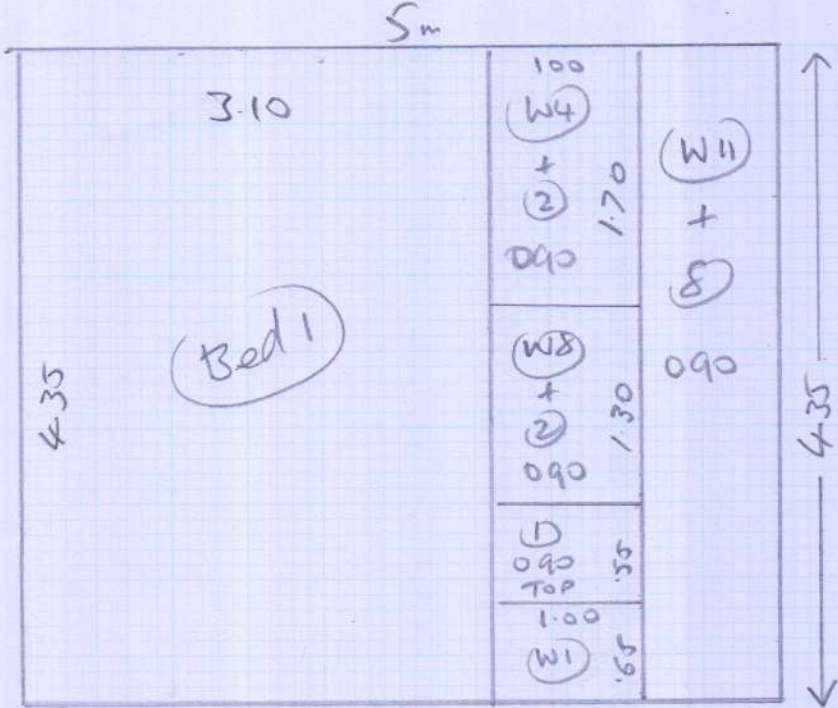 5m
3.10
4.35
Bed 1
100
W4
+
2
090
1.70
W8
+
2
090
1.30
1
090
TOP
.55
1.00
W1
.65
W11
+
8
090
4.35